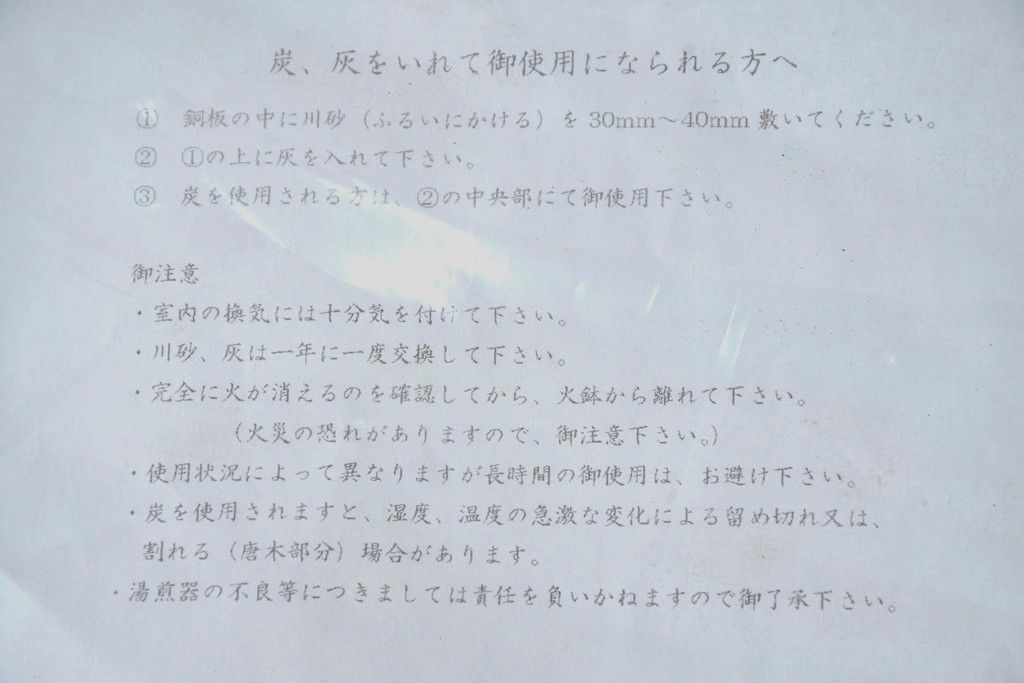 炭、灰をいれて御使用になられる方へ
① 銅板の中に川砂（ふるいにかける）を 30mm～40mm 敷いてください。
② ①の上に灰を入れて下さい。
③ 炭を使用される方は、②の中央部にて御使用下さい。
御注意
・室内の換気には十分気を付けて下さい。
・川砂、灰は一年に一度交換して下さい。
・完全に火が消えるのを確認してから、火鉢から離れて下さい。
（火災の恐れがありますので、御注意下さい。）
・使用状況によって異なりますが長時間の御使用は、お避け下さい。
・炭を使用されますと、湿度、温度の急激な変化による留め切れ又は、
割れる（唐木部分）場合があります。
・湯煎器の不良等につきましては責任を負いかねますので御了承下さい。